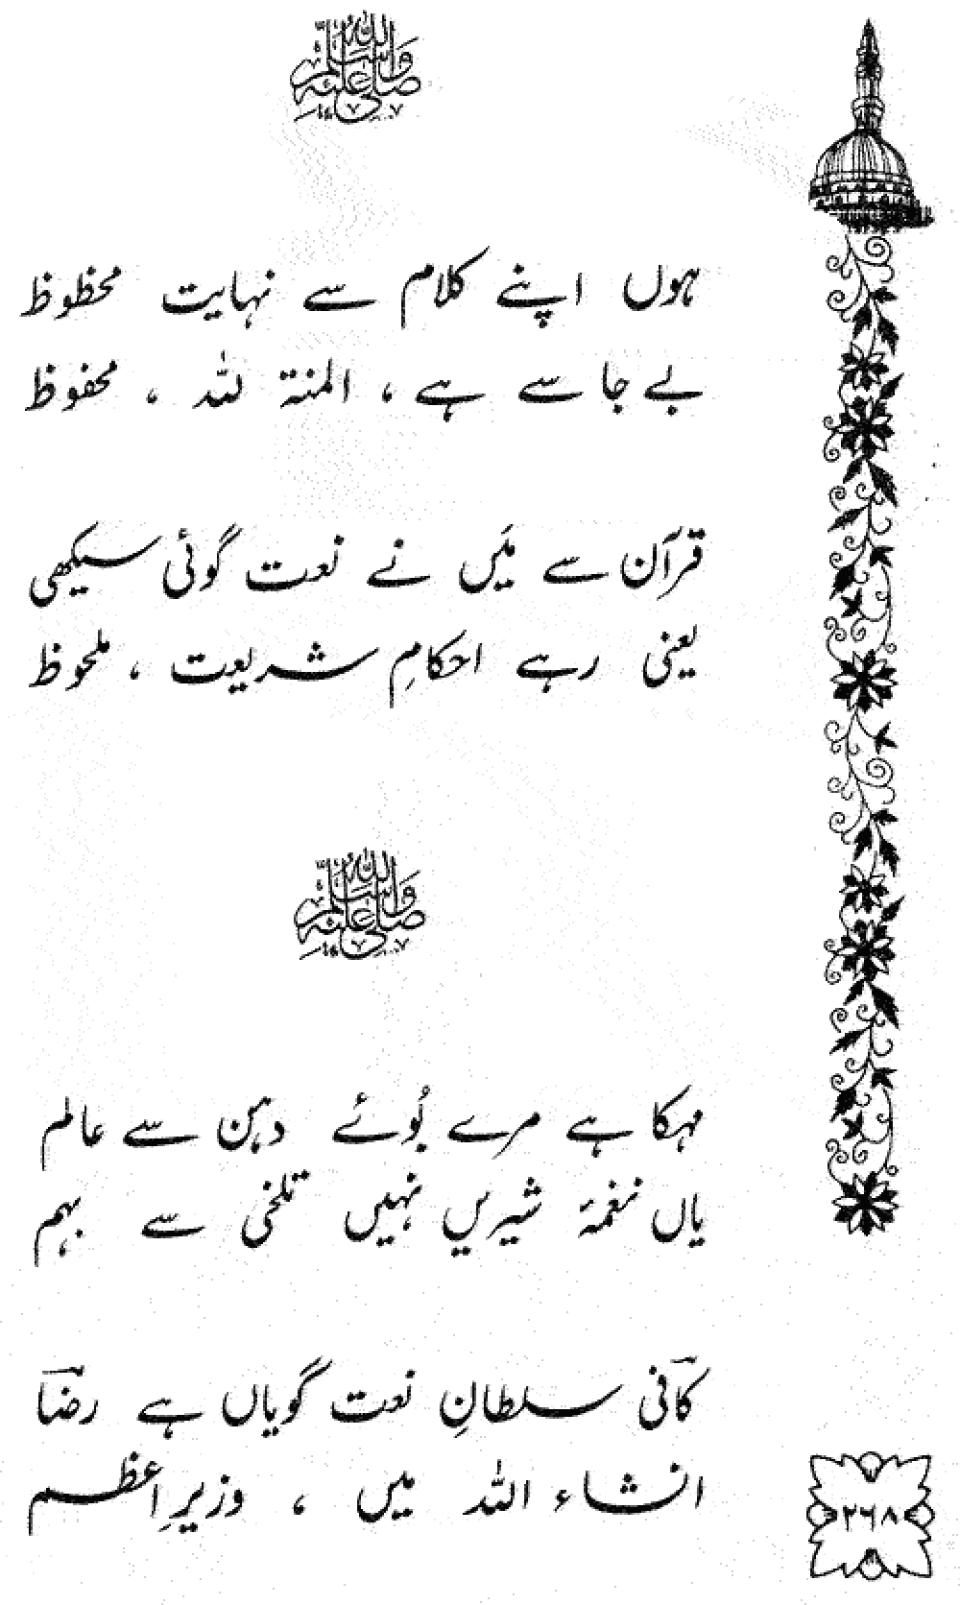 صلی اللہ علیہ وسلم
ہوں اپنے کلام سے نہایت محظوظ
بے جا سے ہے ، المنۃ للہ ، محفوظ
قرآن سے مَیں نے نعت گوئی سیکھی
یعنی رہے احکامِ شریعت ، ملحوظ
صلی اللہ علیہ وسلم
مہکا ہے مرے بُوئے دہن سے عالم
یاں نغمۂ شیریں نہیں تلخی سے بہم
کافؔی سلطانِ نعت گویاں ہے رضاؔ
انشاء اللہ میں ، وزیرِ اعظم
۲۶۸